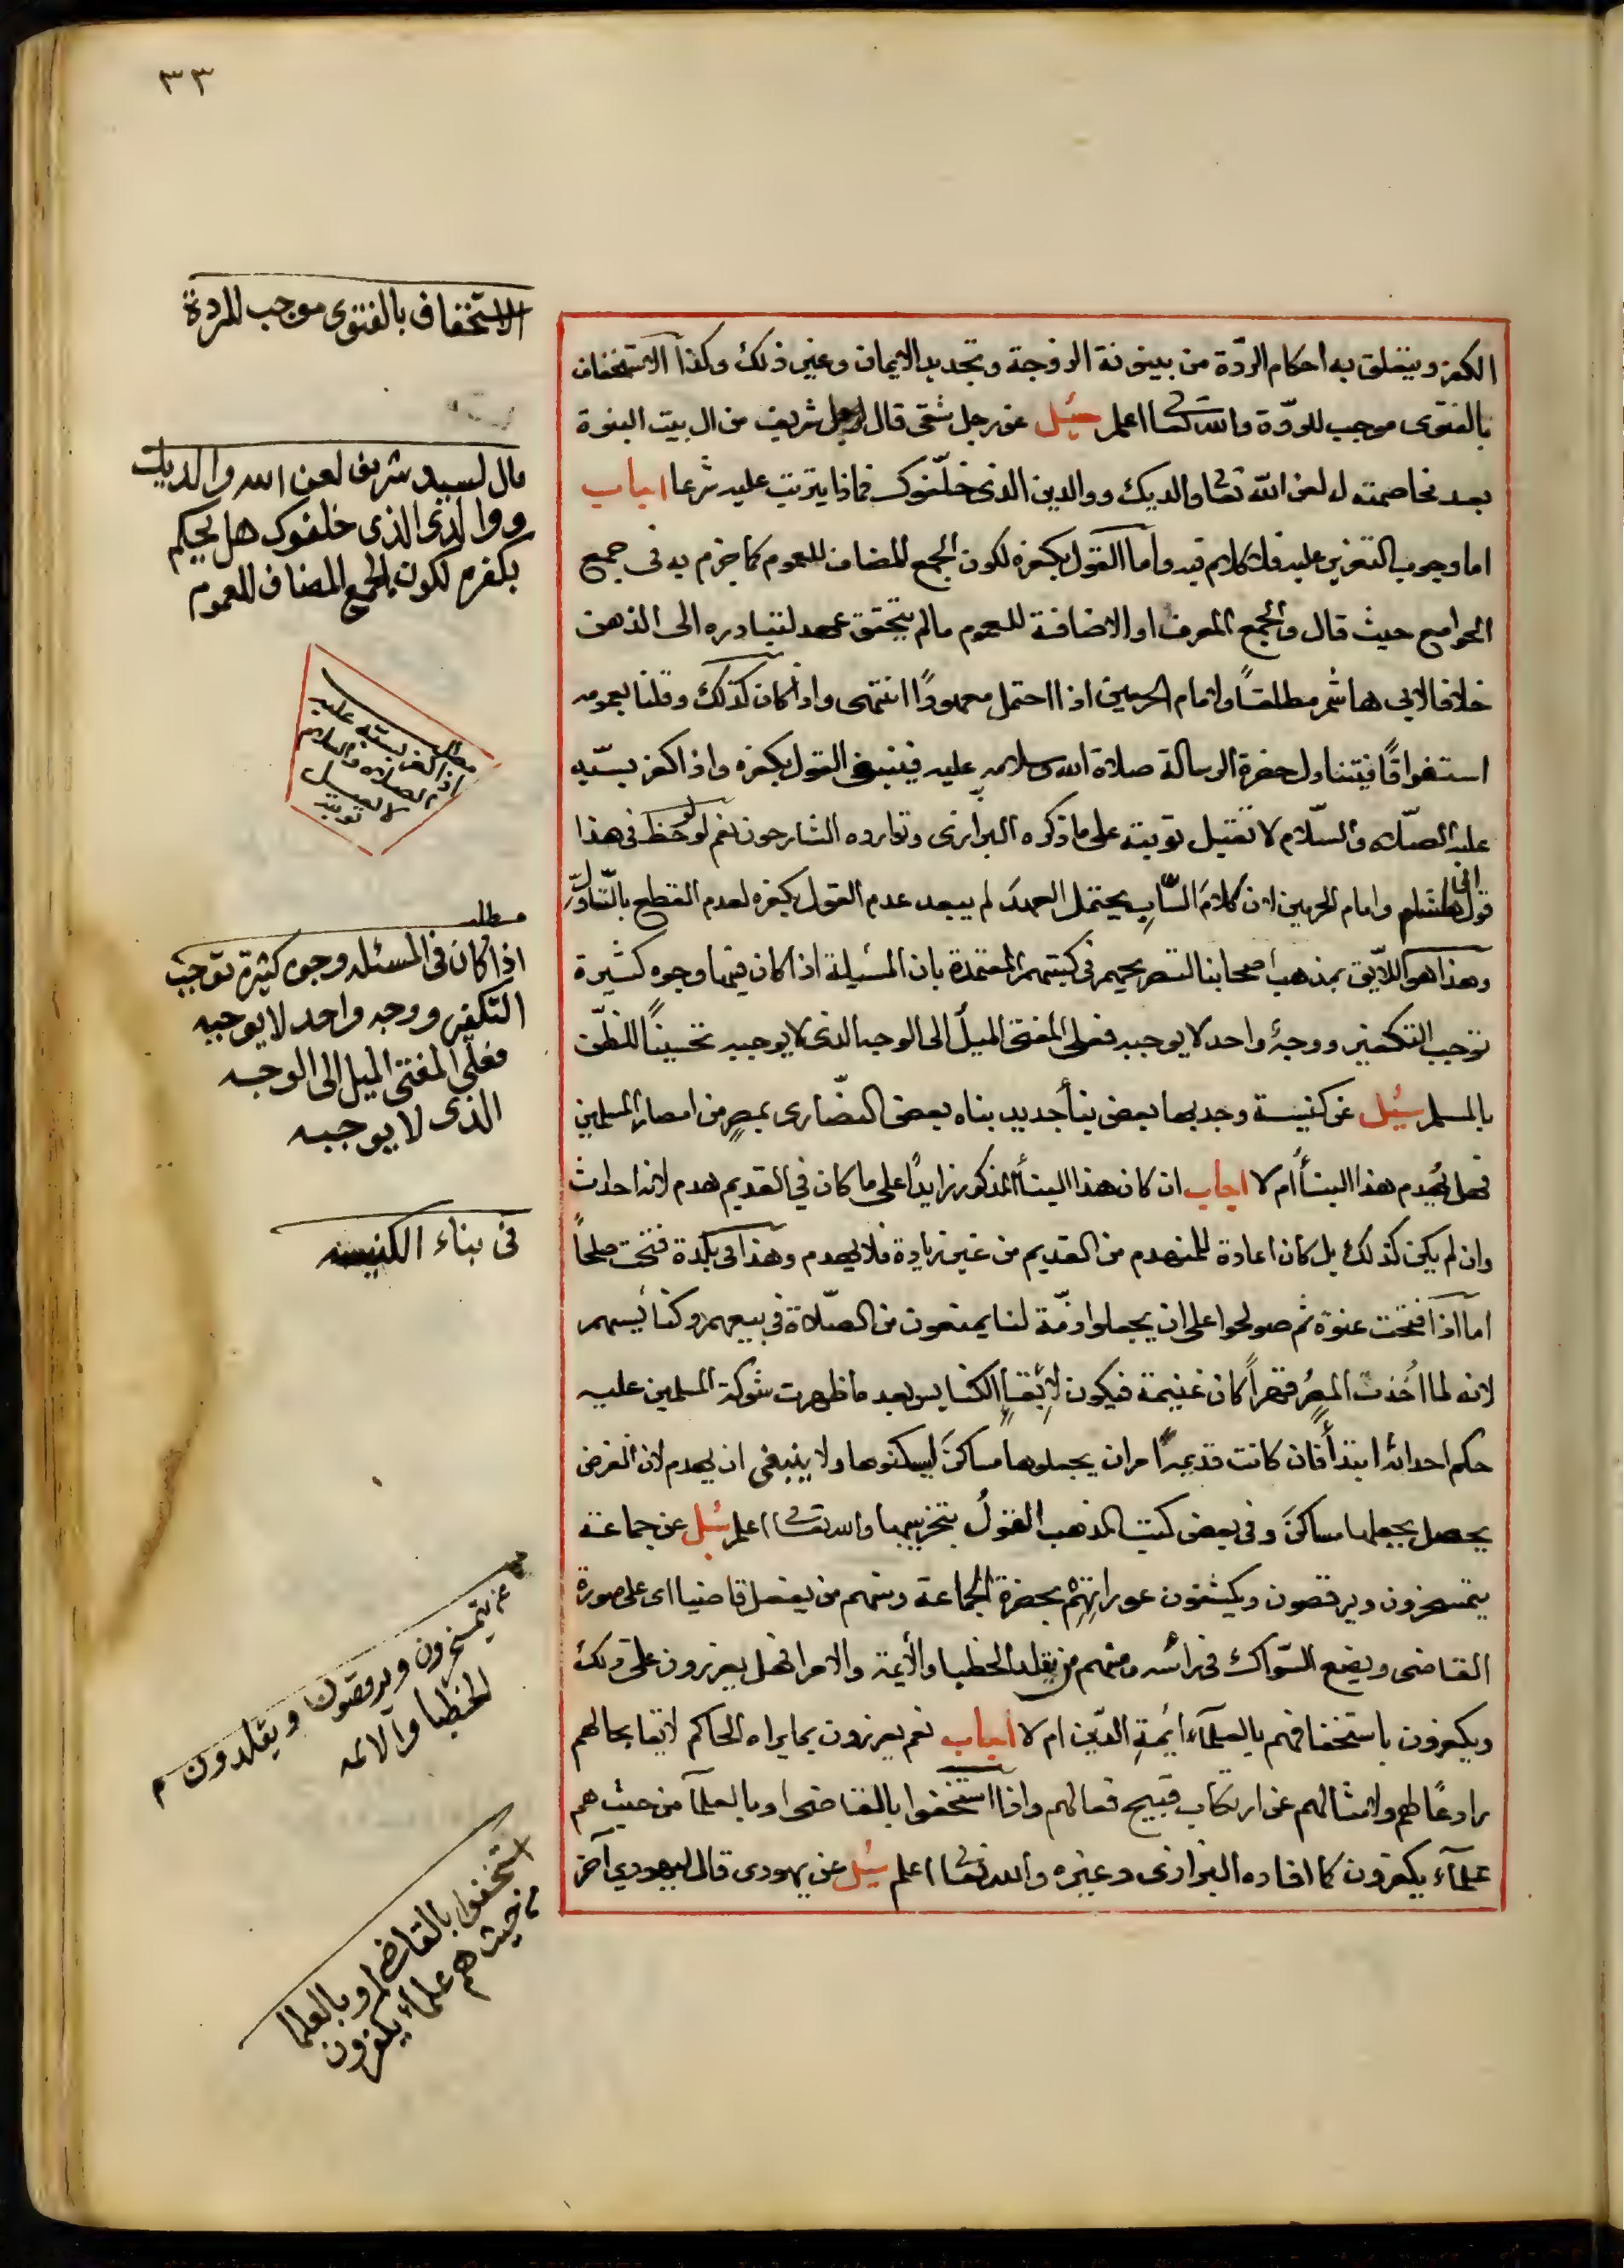 ٣٣
الكفر ويتعلق به احكام الردّة من بينونة الزوجة وتجديد الايمان وغير ذلك وكذا الاستخفاف
بالفتوى موجب للردّة والله تعالى اعلم سئل عن رجل شقى قال لرجل شريف من ال بيت النبوة
بعد مخاصمته له لعن الله تعالى والديك ووالدين الذى خلّفوك فماذا يترتب عليه شرعا اجاب
اما وجوب التعزير عليه فلا كلام فيه واما القول بكفره لكون الجمع المضاف للعموم كما جزم به فى جمع
الجوامع حيث قال والجمع المعرف او الاضافة للعموم مالم يتحقق عهد لتبادره الى الذهن
خلافا لابى هاشم مطلقاً ولامام الحرمين اذا احتمل معهوداً انتهى واذا كان كذلك وقلنا بعمومه
استغراقاً فيتناول حضرة الرسالة صلاة الله وسلامه عليه فينبغى القول بكفره واذا كفر بسبّه
عليه الصلاه والسّلام لا تقبل توبته على ماذكره البزازى وتوارده الشارحون نعم لو لوحظ فى هذا
قول ابى هاشم وامام الحرمين ان كلامَ السّابِ يحتمل العهدَ لم يبعد عدم القول بكفره لعدم القطع بالتّناول
وهذا هو اللايق بمذهب اصحابنا لتصريحهم فى كتبهم المعتمدة بان المسئيلة اذا كان فيها وجوه كثيرة
توجب التكفير ووجهٌ واحد لا يوجبه فعلى المفتى الميلُ الى الوجه الذى لا يوجبه تحسيناً للظن
بالمسلم سئل عن كنيسة وجد بها بعض بنأ جديد بناه بعض النصّارى بمصرٍ من امصار المسلمين
فهل يُهدم هذا البنأ ام لا اجاب ان كان هذا البنأ المذكور زايداً على ما كان فى القديم هدم لانه احداث
وان لم يكن كذلك بل كان اعادة للمنهدم من القديم من غير زيادة فلا يهدم وهذا فى بلدة فتحت صلحاً
اما اذا فتحت عنوة ثم صولحوا على ان يجعلوا ذمّة لنا يمنعون من الصّلاة فى بيعهم وكنائيسهم
لانه لما اُخذت المصرُ قهراً كان غنيمة فيكون لابقاءِ الكنايس بعد ما ظهرت شوكة المسلمين عليه
حكم احداثه ابتدأً فان كانت قديمة اُمروا ان يجعلوها مساكنَ ليسكنوها ولا ينبغى ان يهدم لان الغرض
يحصل بجعلها مساكنَ وفى بعض كتب المذهب القولُ بتخريبها والله تعالى اعلم سئل عن جماعة
يتمسخرون ويرقصون ويكشفون عوراتهم بحضرة الجماعة ومنهم من يفعل قاضيا اى على صورة
القاضى ويضع السّواك فى رأسه ومنهم من يقلد الخطبا والأئمة والامرا فهل يعزرون على ذلك
ويكفرون باستخفافهم بالعلمآء ائمةِ الدّين ام لا اجاب نعم يعزرون بما يراه الحاكم لايقا بحالهم
رادعاً لهم ولامثالهم عن ارتكاب قبيح فعالهم واذا استخفوا بالقاضى او بالعلمآ من حيث هم
علمآء يكفرون كما افاده البزازى وغيره والله تعالى اعلم سئل عن يهودى قال ليهودي آخر
الاستخفاف بالفتوى موجب للردة
قال لسيد شريف لعن الله والديك
ووالدى الذى خلفوك هل يحكم
بكفره لكون الجمع المضاف للعموم
مطلب
اذا كفر بسبّه عليه
الصلاه والسلام
لا تقبل
توبته
مطلب
اذا كان فى المسئله وجوه كثيرة توجب
التكفير ووجه واحد لا يوجبه
فعلى المفتى الميل الى الوجه
الذى لا يوجبه
فى بناء الكنيسه
يتمسخرون ويرقصون ويقلدون
الخطبا والائمه
استخفوا بالقاضى او بالعلما
من حيث هم علماء يكفرون